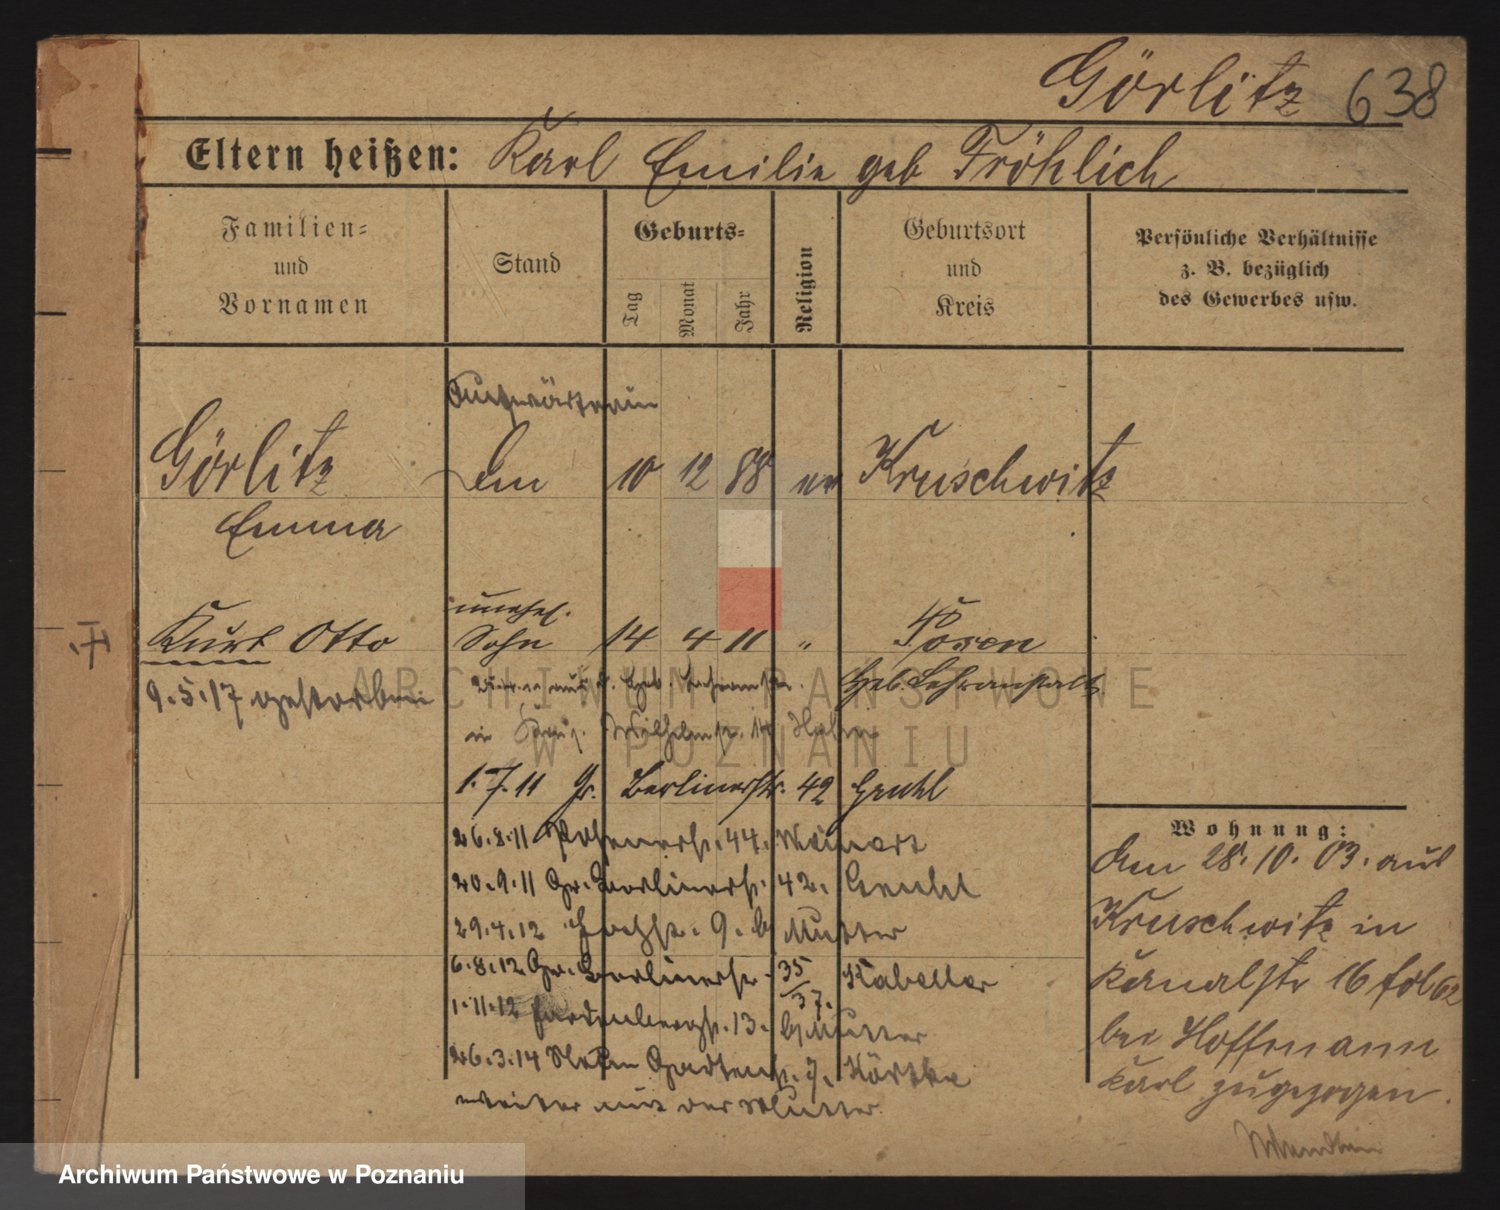 Görlitz 638
Eltern heißen: Karl Emilie geb Fröhlich
Familien- und Vornamen
Stand
Geburts-
Tag
Monat
Jahr
Religion
Geburtsort und Kreis
Persönliche Verhältnisse z. B. bezüglich des Gewerbes usw.
Aufwärterin
Görlitz 10 12 88 ev Kruschwitz
Emma
unehel.
Kurt Otto Sohn 14 4 11 " Posen
9.5.17 gestorben Heb. Lehranstalt
in Wilhelmstr.
1.7.11 Gr. Berlinerstr. 42 Gruhl
26.8.11 Posenerstr. 44. Meinert
20.9.11 Gr. Berlinerstr. 42. Gruhl
29.4.12 9. b Mutter
6.8.12 Gr. Berlinerstr. 35/37. Kabeller
1.11.12 Hardenbergstr. 13. b/Mutter
26.3.14 Gartenstr. 7.
weiter mit der Mutter.
Wohnung:
Am 28.10.03. aus
Kruschwitz in
Kanalstr 16 fol 62
bei Hoffmann
Karl zugezogen.
ARCHIWUM PAŃSTWOWE
W POZNANIU
Archiwum Państwowe w Poznaniu